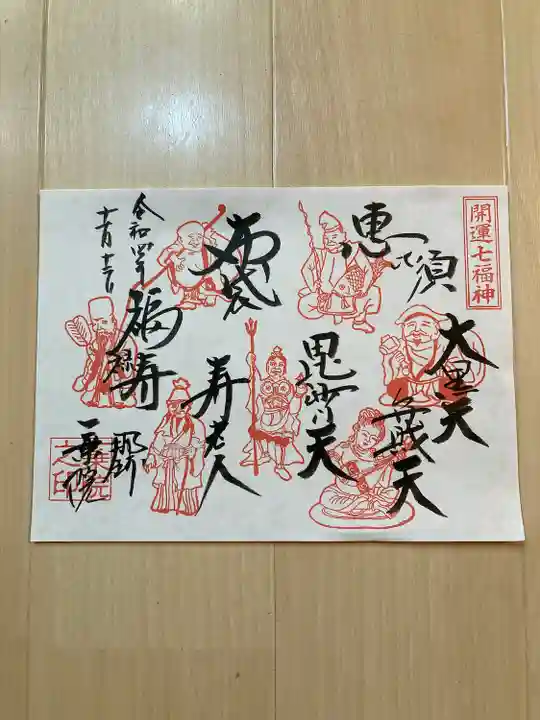 開運七福神
恵比須
大黒天
弁戝天
毘沙門天
布袋
寿老人
福禄寿
令和四年
十一月十三日
那珂
一乗院